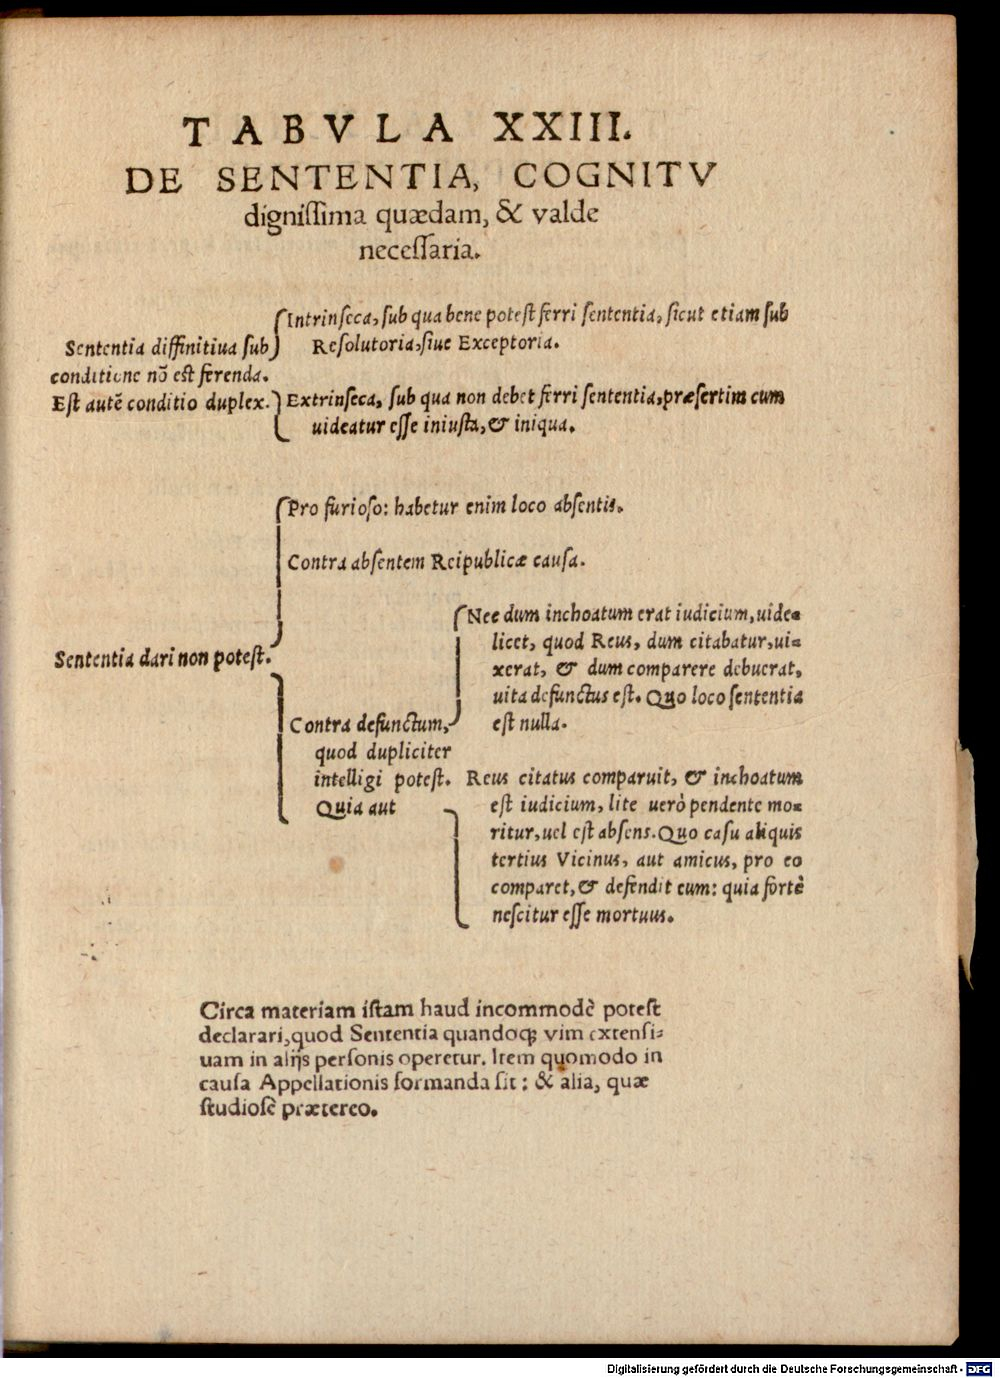 TABVLA XXIII.
DE SENTENTIA, COGNITV
digniſſima quædam, & valde
neceſſaria.
Intrinſeca, ſub qua bene poteſt ferri ſententia, ſicut etiam ſub
Reſolutoria, ſiue Exceptoria.
Sententia diffinitiua ſub
conditione nõ eſt ferenda.
Eſt autẽ conditio duplex.
Extrinſeca, ſub qua non debet ferri ſententia, præſertim cum
uideatur eſſe iniuſta, & iniqua.
Pro furioſo: habetur enim loco abſentis.
Contra abſentem Reipublicæ cauſa.
Sententia dari non poteſt.
Contra defunctum,
quod dupliciter
intelligi poteſt.
Quia aut
Nec dum inchoatum erat iudicium, uide-
licet, quod Reus, dum citabatur, ui-
xerat, & dum comparere debuerat,
uita defunctus eſt. Quo loco ſententia
eſt nulla.
Reus citatus comparuit, & inchoatum
eſt iudicium, lite uerò pendente mo-
ritur, uel eſt abſens. Quo caſu aliquis
tertius Vicinus, aut amicus, pro eo
comparet, & defendit eum: quia fortè
neſcitur eſſe mortuus.
Circa materiam iſtam haud incommodè poteſt
declarari, quod Sententia quandoq; vim extenſi-
uam in alijs perſonis operetur. Item quomodo in
cauſa Appellationis formanda ſit: & alia, quæ
ſtudioſè prætereo.
Digitalisierung gefördert durch die Deutsche Forschungsgemeinschaft - DFG